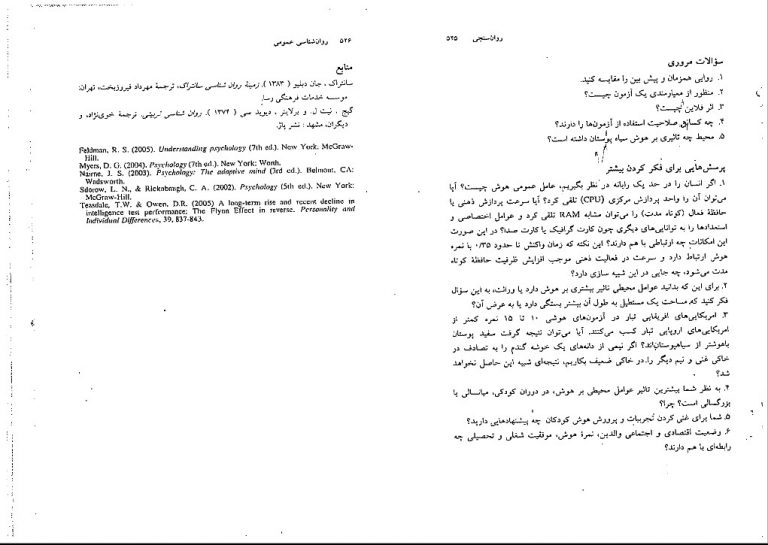 روان‌سنجی ۵۲۵
سؤالات مروری
۱. روایی همزمان و پیش بین را مقایسه کنید.
۲. منظور از معیارمندی یک آزمون چیست؟
۳. اثر فلاین چیست؟
۴. چه کسانی صلاحیت استفاده از آزمون‌ها را دارند؟
۵. محیط چه تاثیری بر هوش سیاه پوستان داشته است؟
پرسش‌هایی برای فکر کردن بیشتر
۱. اگر انسان را در حد یک رایانه در نظر بگیریم، عامل عمومی هوش چیست؟ آیا
می‌توان آن را واحد پردازش مرکزی (CPU) تلقی کرد؟ آیا سرعت پردازش ذهنی یا
حافظهٔ فعال (کوتاه مدت) را می‌توان مشابه RAM تلقی کرد و عوامل اختصاصی و
استعدادها را به توانایی‌های دیگری چون کارت گرافیک یا کارت صدا؟ در این صورت
این امکانات چه ارتباطی با هم دارند؟ این نکته که زمان واکنش تا حدود ۰/۳۵ با نمره
هوش ارتباط دارد و سرعت در فعالیت ذهنی موجب افزایش ظرفیت حافظهٔ کوتاه
مدت می‌شود، چه جایی در این شبیه سازی دارد؟
۲. برای این که بدانید عوامل محیطی تاثیر بیشتری بر هوش دارد یا وراثت، به این سؤال
فکر کنید که مساحت یک مستطیل به طول آن بیشتر بستگی دارد یا به عرض آن؟
۳. امریکایی‌های افریقایی تبار در آزمون‌های هوشی ۱۰ تا ۱۵ نمره کمتر از
امریکایی‌های اروپایی تبار کسب می‌کنند. آیا می‌توان نتیجه گرفت سفید پوستان
باهوشتر از سیاهپوستان‌اند؟ اگر نیمی از دانه‌های یک خوشه گندم را به تصادف در
خاکی غنی و نیم دیگر را در خاکی ضعیف بکاریم، نتیجه‌ای شبیه این حاصل نخواهد
شد؟
۴. به نظر شما بیشترین تاثیر عوامل محیطی بر هوش، در دوران کودکی، میانسالی یا
بزرگسالی است؟ چرا؟
۵. شما برای غنی کردن تجربیات و پرورش هوش کودکان چه پیشنهادهایی دارید؟
۶. وضعیت اقتصادی و اجتماعی والدین، نمرهٔ هوش، موفقیت شغلی و تحصیلی چه
رابطه‌ای با هم دارند؟
۵۲۶ روان‌شناسی عمومی
منابع
سانتراک، جان دبلیو (۱۳۸۳). زمینهٔ روان شناسی سانتراک، ترجمهٔ مهرداد فیروزبخت، تهران:
موسسه خدمات فرهنگی رسا.
گیج، نیت ل. و برلاینر، دیوید سی (۱۳۷۴). روان شناسی تربیتی، ترجمهٔ خوی‌نژاد، و
دیگران، مشهد: نشر پاژ.
Feldman, R. S. (2005). Understanding psychology (7th ed.). New York. McGraw-
Hill.
Myers, D. G. (2004). Psychology (7th ed.). New York: Worth.
Nairne, J. S. (2003). Psychology: The adaptive mind (3rd ed.). Belmont, CA:
Wadsworth.
Sdorow, L. N., & Rickabaugh, C. A. (2002). Psychology (5th ed.). New York:
McGraw-Hill.
Teasdale, T.W. & Owen, D.R. (2005) A long-term rise and recent decline in
intelligence test performance: The Flynn Effect in reverse. Personality and
Individual Differences, 39, 837-843.